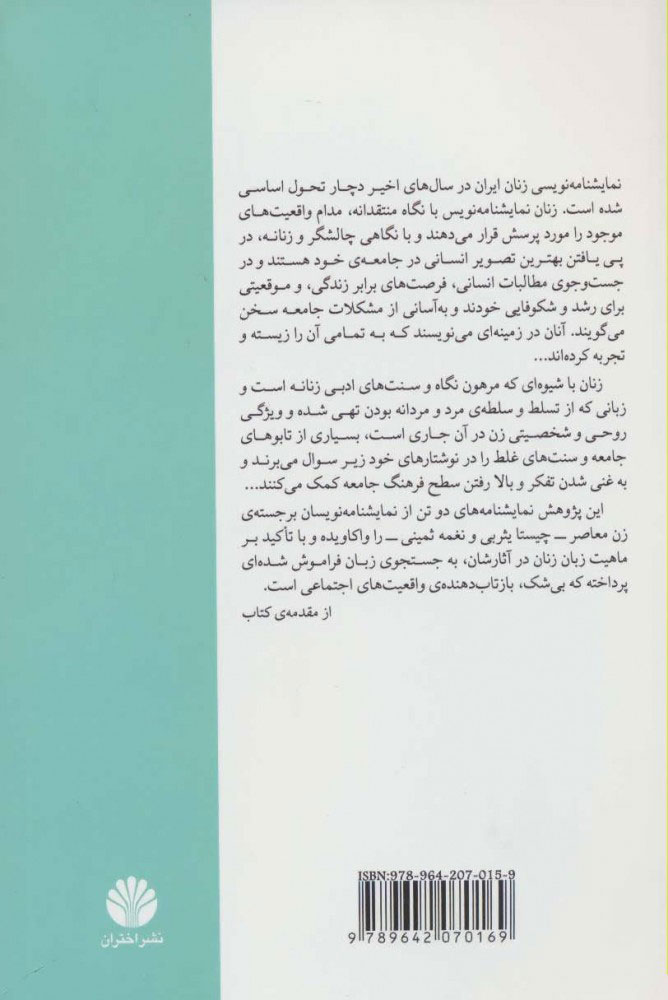 نمایشنامه‌نویسی زنان ایران در سال‌های اخیر دچار تحول اساسی
شده است. زنان نمایشنامه‌نویس با نگاه منتقدانه، مدام واقعیت‌های
موجود را مورد پرسش قرار می‌دهند و با نگاهی چالشگر و زنانه، در
پی یافتن بهترین تصویر انسانی در جامعه‌ی خود هستند و در
جست‌وجوی مطالبات انسانی، فرصت‌های برابر زندگی، و موقعیتی
برای رشد و شکوفایی خودند و به‌آسانی از مشکلات جامعه سخن
می‌گویند. آنان در زمینه‌ای می‌نویسند که به تمامی آن را زیسته و
تجربه کرده‌اند...
زنان با شیوه‌ای که مرهون نگاه و سنت‌های ادبی زنانه است و
زبانی که از تسلط و سلطه‌ی مرد و مردانه بودن تهی شده و ویژگی
روحی و شخصیتی زن در آن جاری است، بسیاری از تابوهای
جامعه و سنت‌های غلط را در نوشتارهای خود زیر سوال می‌برند و
به غنی شدن تفکر و بالا رفتن سطح فرهنگ جامعه کمک می‌کنند...
این پژوهش نمایشنامه‌های دو تن از نمایشنامه‌نویسان برجسته‌ی
زن معاصر ــ چیستا یثربی و نغمه ثمینی ــ را واکاویده و با تأکید بر
ماهیت زبان زنان در آثارشان، به جستجوی زبان فراموش شده‌ای
پرداخته که بی‌شک، بازتاب‌دهنده‌ی واقعیت‌های اجتماعی است.
از مقدمه‌ی کتاب
ISBN:978-964-207-015-9
9 789642 070169
نشر اختران